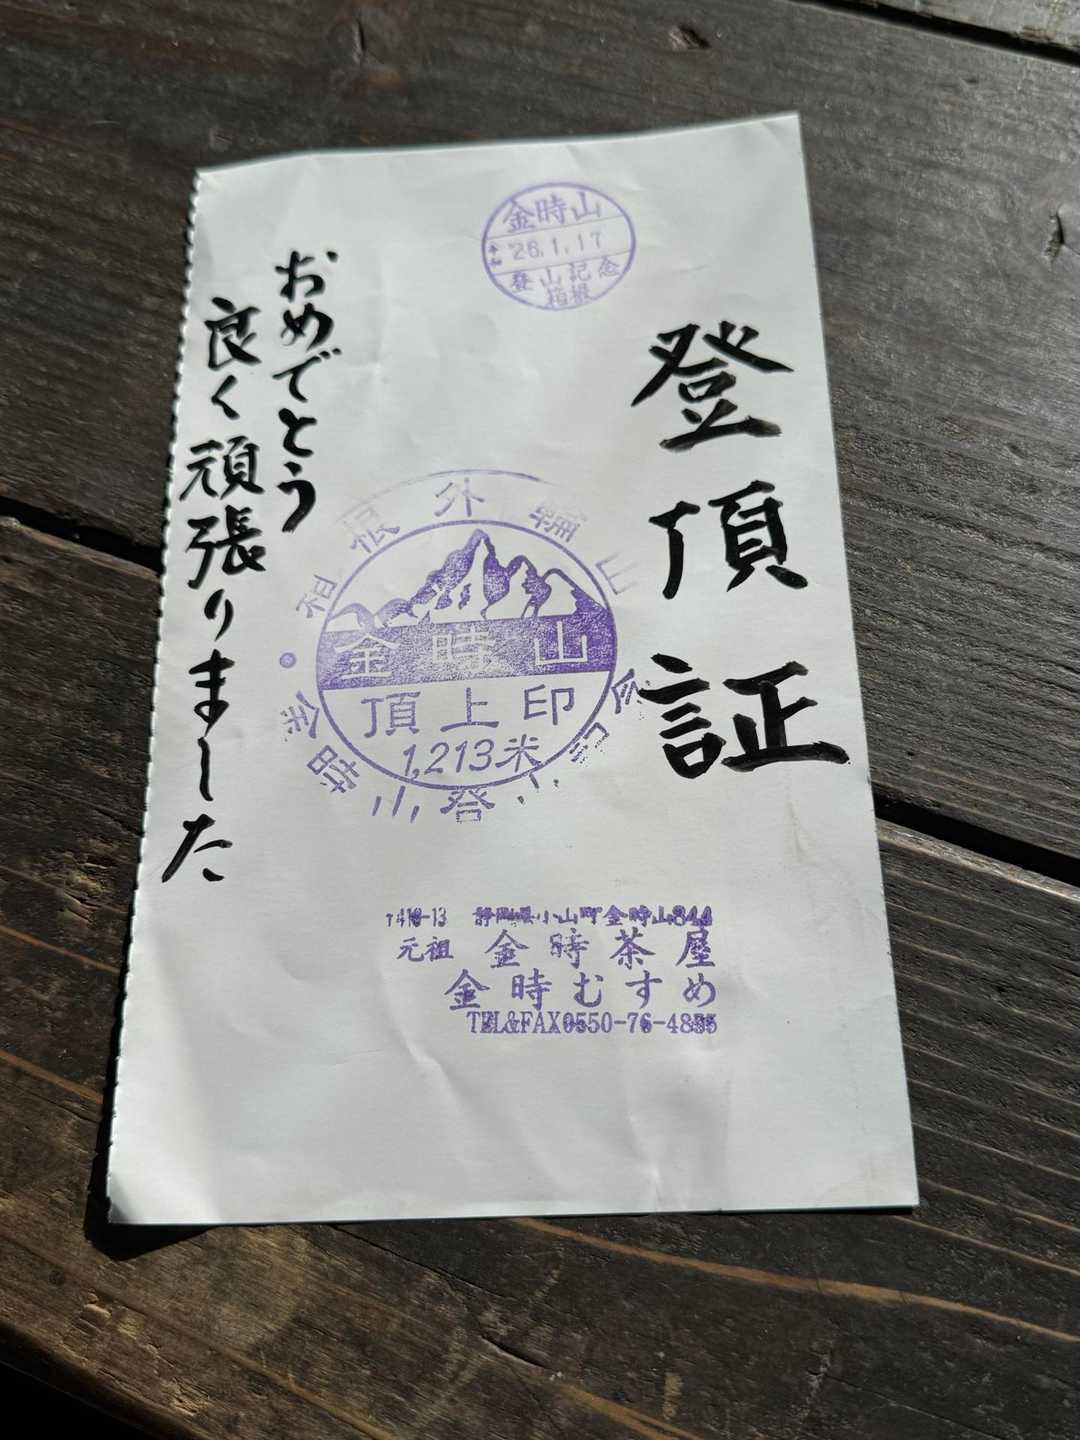 登頂証
金時山
令和 26.1.17
登山記念
箱根
おめでとう
良く頑張りました
箱根外輪山
金時山
頂上印
1,213米
金時山登山記念
〒410-13 静岡県小山町金時山844
元祖 金時茶屋
金時むすめ
TEL&FAX0550-76-4855